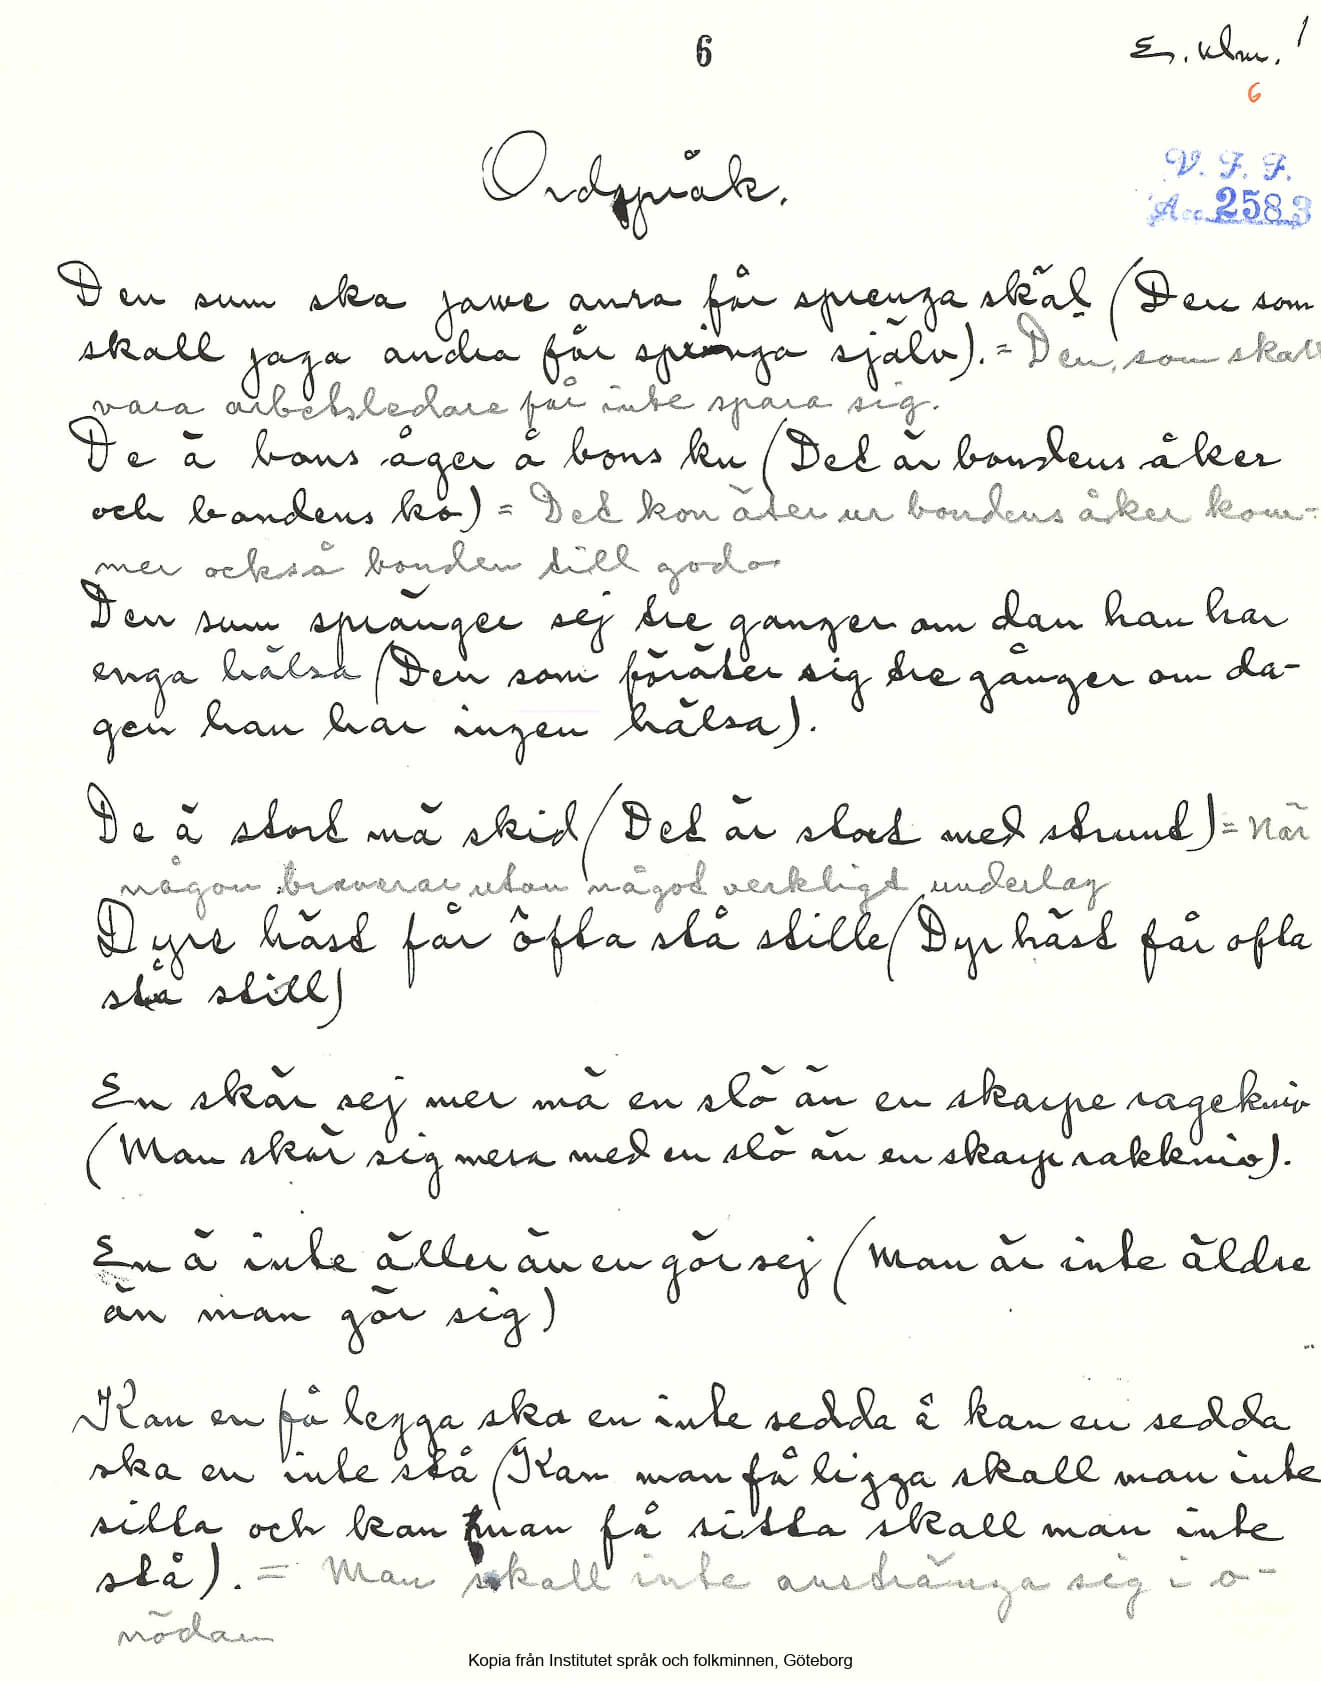 6
En. klm. 1
6
Ordspråk.
V. F. F.
Acc. 2583
Den sum ska jawe anra får sprenga skäl (Den som
skall jaga andra får springa själv). = Den, som skall
vara arbetsledare får inte spara sig.
De ä bons åger å bons ku (Det är bondens åker
och bondens ko) = Det kon äter ur bondens åker kom-
mer också bonden till godo
Den sum spränger sej tre ganger om dan han har
enga hälsa (Den som föräter sig tre gånger om da-
gen han har ingen hälsa).
De ä stort mä skid (Det är stort med strunt) = När
någon braverar utan något verkligt underlag
Dyre häst får ôfta stå stille (Dyr häst får ofta
stå still)
En skär sej mer mä en slö än en skarpe ragekniv
(Man skär sig mera med en slö än en skarp rakkniv).
En ä inte äller än en gör sej (Man är inte äldre
än man gör sig)
Kan en få legga ska en inte sedda å kan en sedda
ska en inte stå (Kan man få ligga skall man inte
sitta och kan man få sitta skall man inte
stå). = Man skall inte anstränga sig i o-
nödan
Kopia från Institutet språk och folkminnen, Göteborg